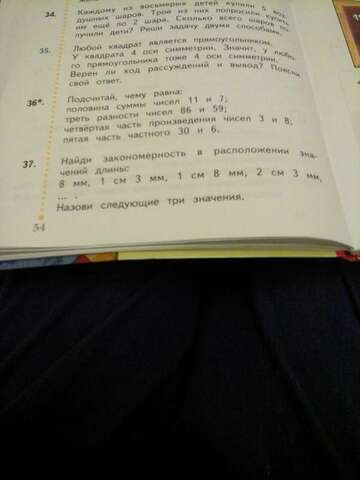 34. Каждому из восьмерых детей купили 5 воз-
душных шаров. Трое из них попросили купить
им ещё по 2 шара. Сколько всего шаров по-
лучили дети? Реши задачу двумя способами.
35. Любой квадрат является прямоугольником.
У квадрата 4 оси симметрии. Значит, у любо-
го прямоугольника тоже 4 оси симметрии.
Верен ли ход рассуждений и вывод? Поясни
свой ответ.
36*. Подсчитай, чему равна:
половина суммы чисел 11 и 7;
треть разности чисел 86 и 59;
четвёртая часть произведения чисел 3 и 8;
пятая часть частного 30 и 6.
37. Найди закономерность в расположении зна-
чений длины:
8 мм, 1 см 3 мм, 1 см 8 мм, 2 см 3 мм,
... .
Назови следующие три значения.
54